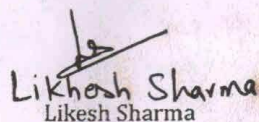 Likhesh Sharma
Likesh Sharma